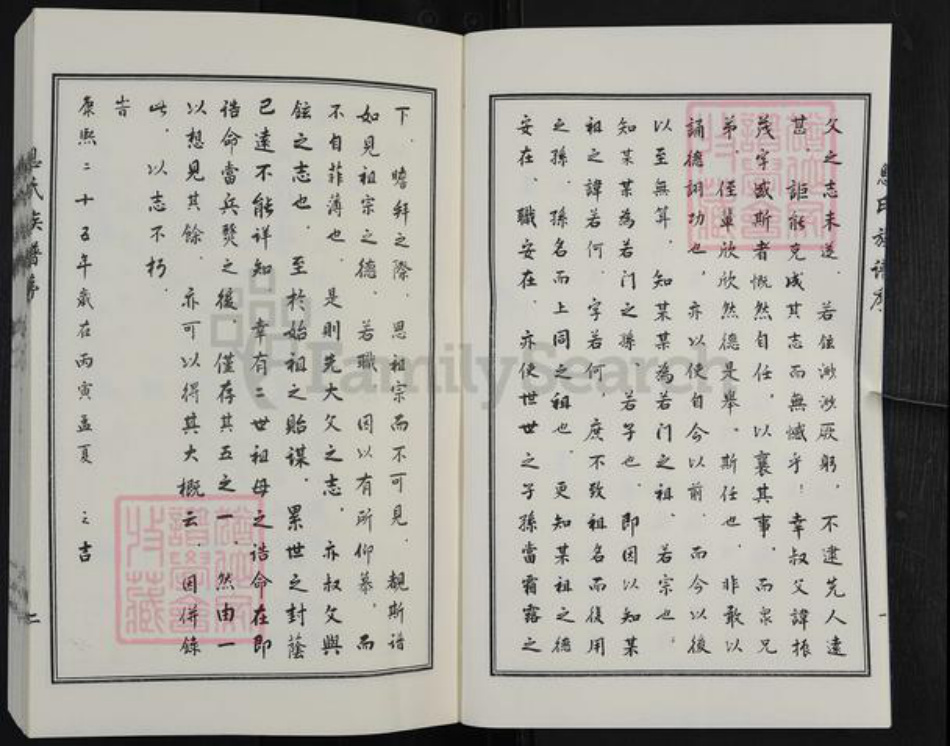 父之志未遂．若鉉渺渺厥躬．不逮先人遠
甚．詎能克成其志而無憾乎！幸叔父諱振
茂字盛斯者慨然自任．以襄其事．而眾兄
弟．侄輩欣欣然德是舉．斯任也．非敢以
誦德詞功也．亦以使自今以前．而今以後
以至無算．知某某為若門之祖．若宗也．
知某某為若門之孫．若子也．即因以知某
祖之諱若何．字若何．庶不致祖名而後用
之孫．孫名而上同之祖也．更知某祖之德
安在．職安在．亦使世世之子孫當霜露之
氏族譜序
一
下．瞻拜之際．思祖宗而不可見．覩斯譜
如見祖宗之德．若職．因以有所仰慕．而
不自菲薄也．是則先大父之志．亦叔父與
鉉之志也．至於始祖之貽謀．累世之封蔭
已遠不能詳知．幸有二世祖母之誥命在即
誥命當兵燹之後．僅存其五之一．然由一
以想見其餘．亦可以得其大概云．因併錄
此．以志不朽．
告
康熙二十五年歲在丙寅孟夏 之吉
氏族譜序
二
FamilySearch